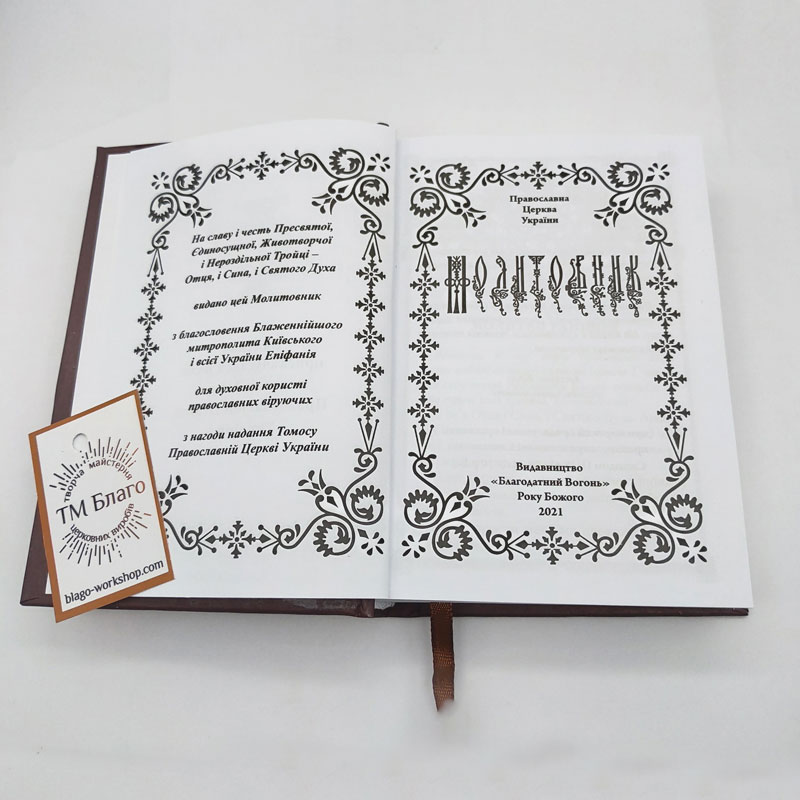 На славу і честь Пресвятої,
Єдиносущної, Животворчої
і Нероздільної Тройці –
Отця, і Сина, і Святого Духа
видано цей Молитовник
з благословення Блаженнійшого
митрополита Київського
і всієї України Епіфанія
для духовної користі
православних віруючих
з нагоди надання Томосу
Православній Церкві України
Православна
Церква
України
Молитовник
Видавництво
«Благодатний Вогонь»
Року Божого
2021
творча майстерня
ТМ Благо
церковних виробів
blago-workshop.com